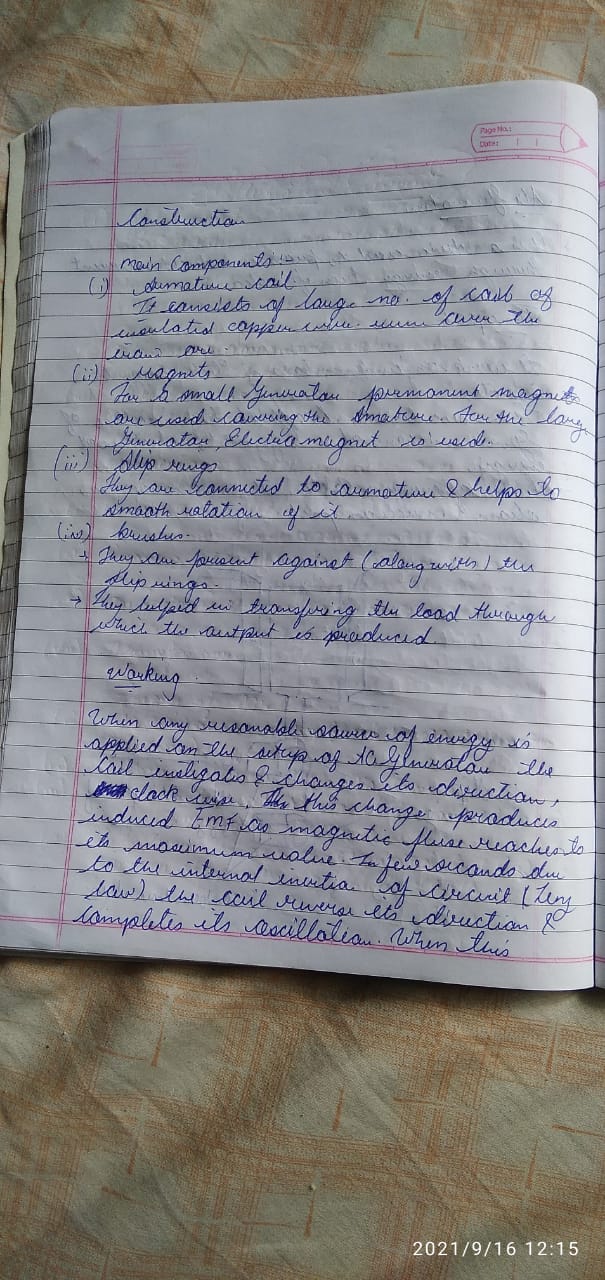 Page No.:
Date:
Construction
main Components:
(i) Armature coil
It consists of large no. of coils of
insulated copper wire over the
(ii) magnets
For a small Generator permanent magnets
are used covering the Amature. For the large
Generator, Electro magnet is used.
(iii) Slip rings
They are connected to armature & helps to
smooth rotation of it
(iv) brushes.
→ They are present against (along with) the
slip rings.
→ They helped in transfering the load through
which the output is produced.
Working
When any resonable source of energy is
applied on the setup of AC Generator the
Coil & changes its direction,
clock wise, this change produces
induced Emf as magnetic fluse reaches to
its maximum value. In few seconds due
to the internal inertia of circuit (Leny
law) the coil reverse its direction &
Completes its oscillation. When this
2021/9/16 12:15